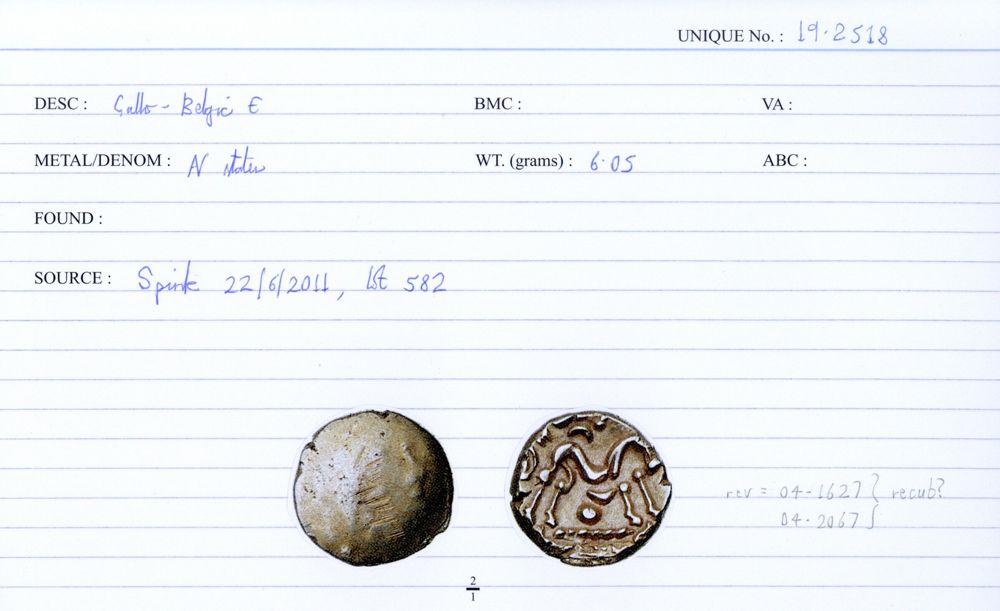 UNIQUE No. : 19.2518
DESC : Gallo-Belgic E BMC : VA :
METAL/DENOM : N stater WT. (grams) : 6.05 ABC :
FOUND :
SOURCE : Spink 22/6/2011, lot 582
rev = 04-1627 } recub?
04-2067
2
1